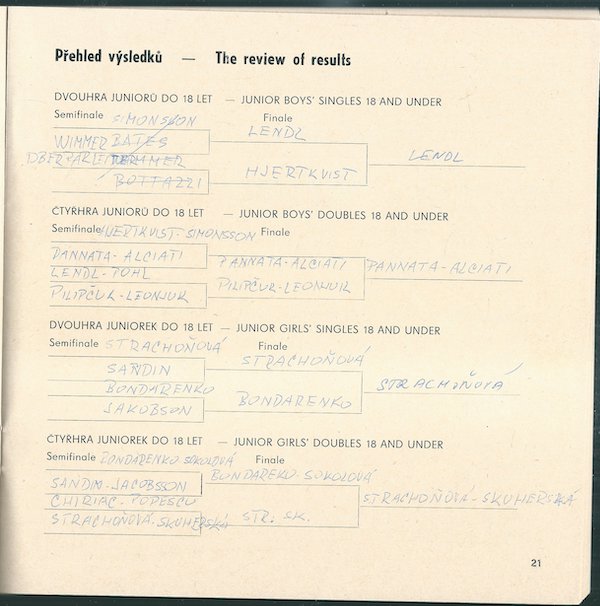 Přehled výsledků — The review of results
DVOUHRA JUNIORŮ DO 18 LET — JUNIOR BOYS' SINGLES 18 AND UNDER
Semifinale SIMONSSON Finale
LENDL
WIMMER BATES
LENDL
HJERTKVIST
BOTTAZZI
ČTYŘHRA JUNIORŮ DO 18 LET — JUNIOR BOYS' DOUBLES 18 AND UNDER
Semifinale HJERTKVIST-SIMONSSON Finale
PANNATA-ALCIATI
PANNATA-ALCIATI
PANNATA-ALCIATI
LENDL-POHL
PILIPČUK-LEONJUK
PILIPČUK-LEONJUK
DVOUHRA JUNIOREK DO 18 LET — JUNIOR GIRLS' SINGLES 18 AND UNDER
Semifinale STRACHOŇOVÁ Finale
STRACHOŇOVÁ
SANDIN
STRACHOŇOVÁ
BONDARENKO
BONDARENKO
JAKOBSON
ČTYŘHRA JUNIOREK DO 18 LET — JUNIOR GIRLS' DOUBLES 18 AND UNDER
Semifinale BONDARENKO SOKOLOVÁ Finale
BONDAREKO-SOKOLOVÁ
SANDIN-JACOBSSON
STRACHOŇOVÁ-SKUHERSKÁ
CHIRIAC-POPESCU
STRACHOŇOVÁ-SKUHERSKÁ STR. SK.
21